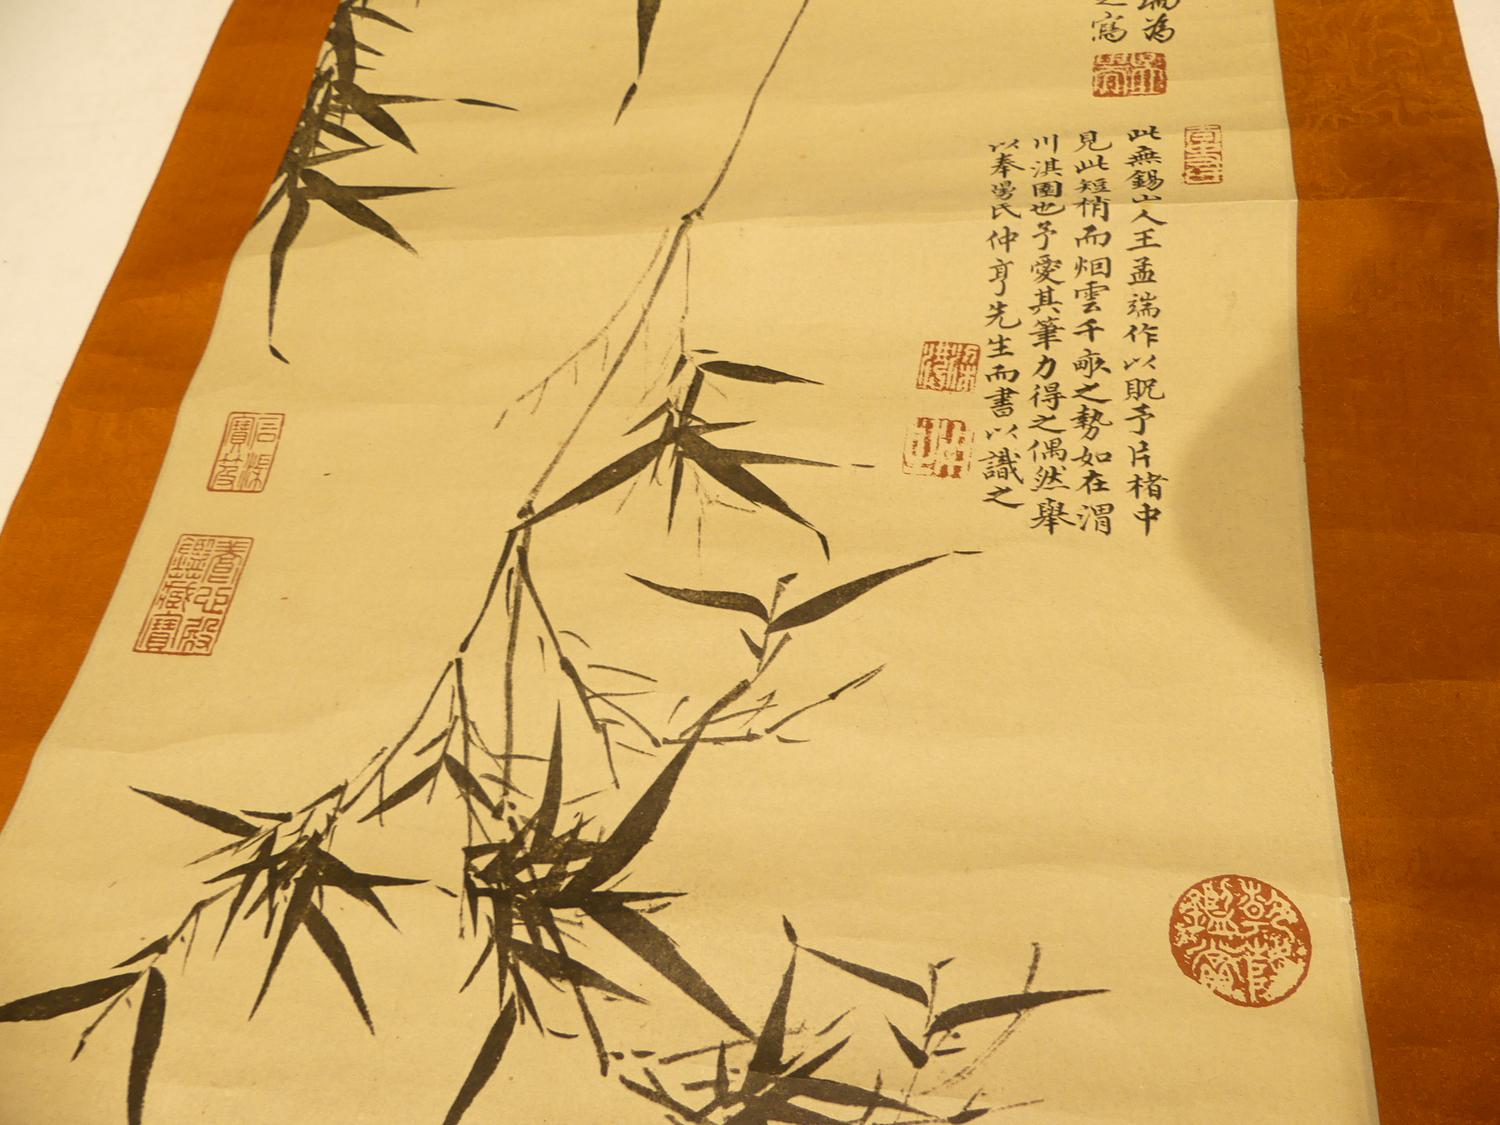 端為
之寫
此無錫山人王孟端作以貺予片楮中
見此短梢而烟雲千畝之勢如在渭
川淇園也予愛其筆力得之偶然舉
以奉湯氏仲亨先生而書以識之
石渠
寶笈
養心殿
鑑藏寶